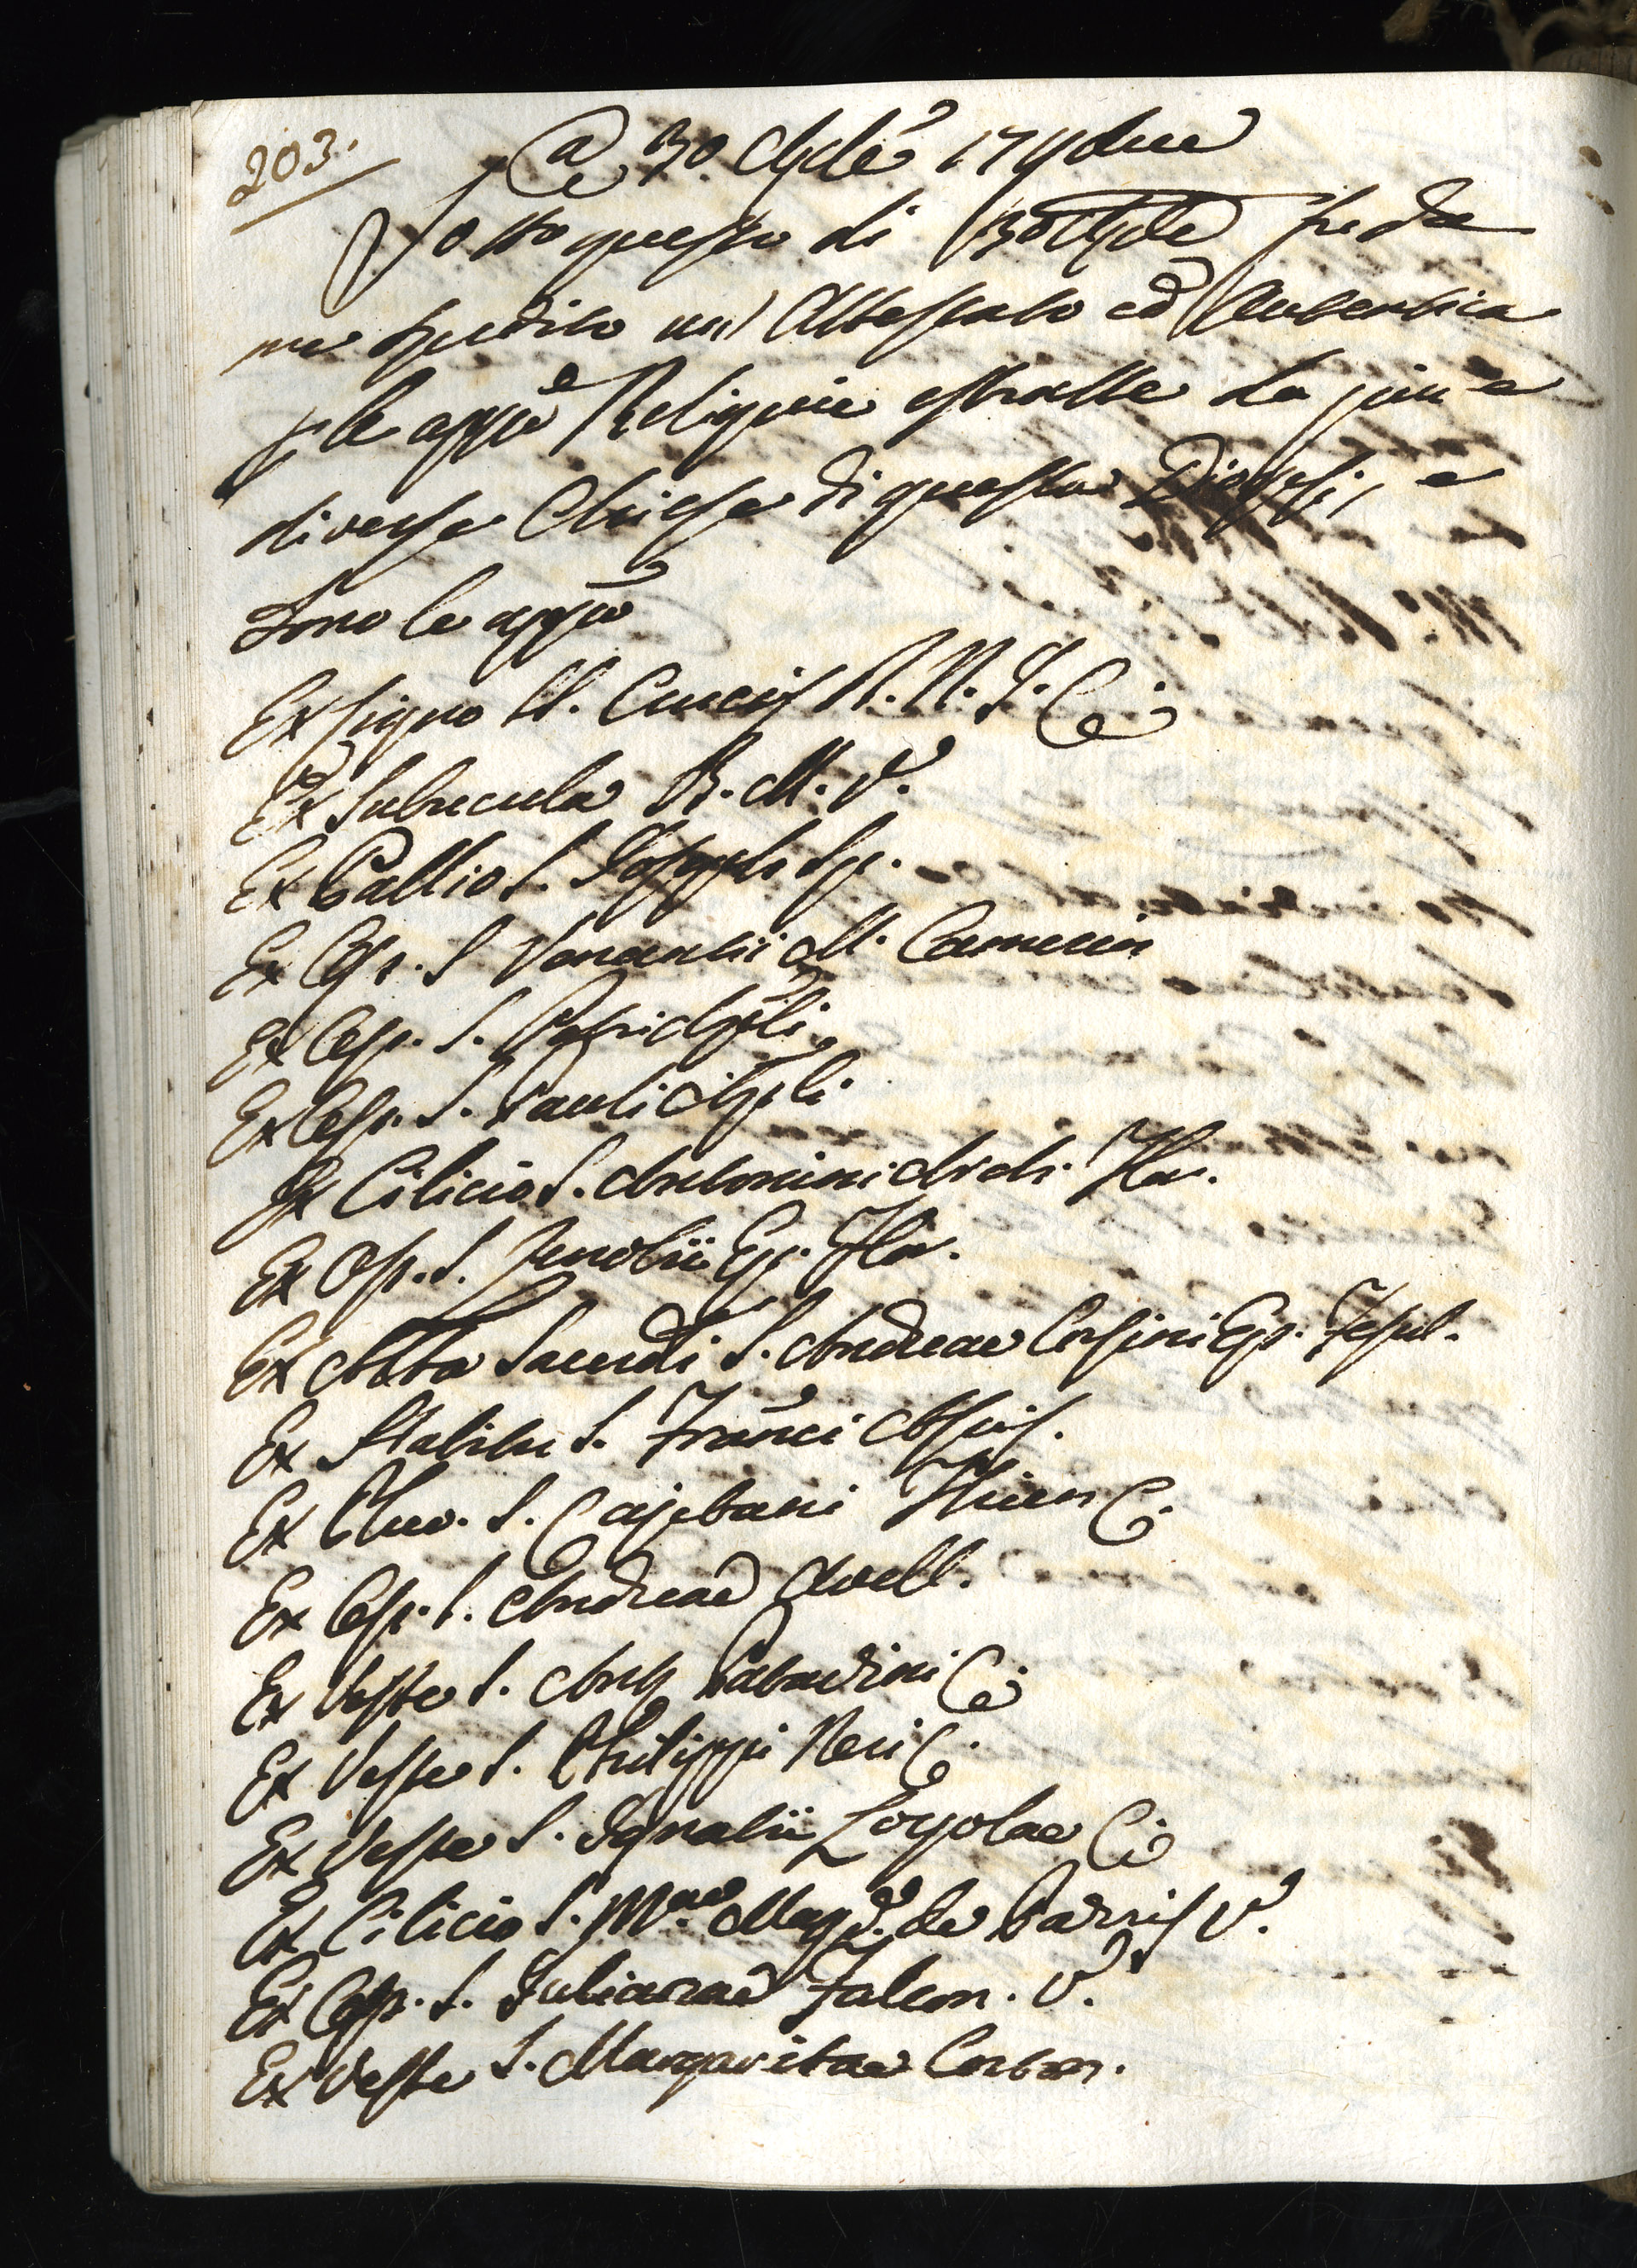 203.
a 30. Aple 1794
Sotto questo di 30 Aple fu da
me spedito un Attestato ed Autentica
p le appie Reliquie estratte da piu e
diverse Chiese di questa Diogesi, e
sono le appie
Ex Ligno SS. Crucis D. N. J. C.
Ex Subucula B. M. V.
Ex Pallio S. Joseph Sp.
Ex Oss. S. Venantii M. Camerin
Ex Oss. S. Petri Apli
Ex Oss. S. Pauli Apli
Ex Cilicio S. Antonini Archi. Flor.
Ex Oss. S. Zenobii Ep. Flor.
Ex Alba Sacerdli S. Andreae Corsini Ep. Fesul.
Ex S. Franci Assis.
Ex S. Cajetani Thien C.
Ex Oss. S. Andreae Avell.
Ex Veste S. Ant Patavini C.
Ex Veste S. Philippi Neri C.
Ex Veste S. Ignatii Loyolae C.
Ex Cilicio S. Mae Magd. de Pazzis V.
Ex Oss. S. Julianae Falcon. V.
Ex Veste S. Margaritae Corton.